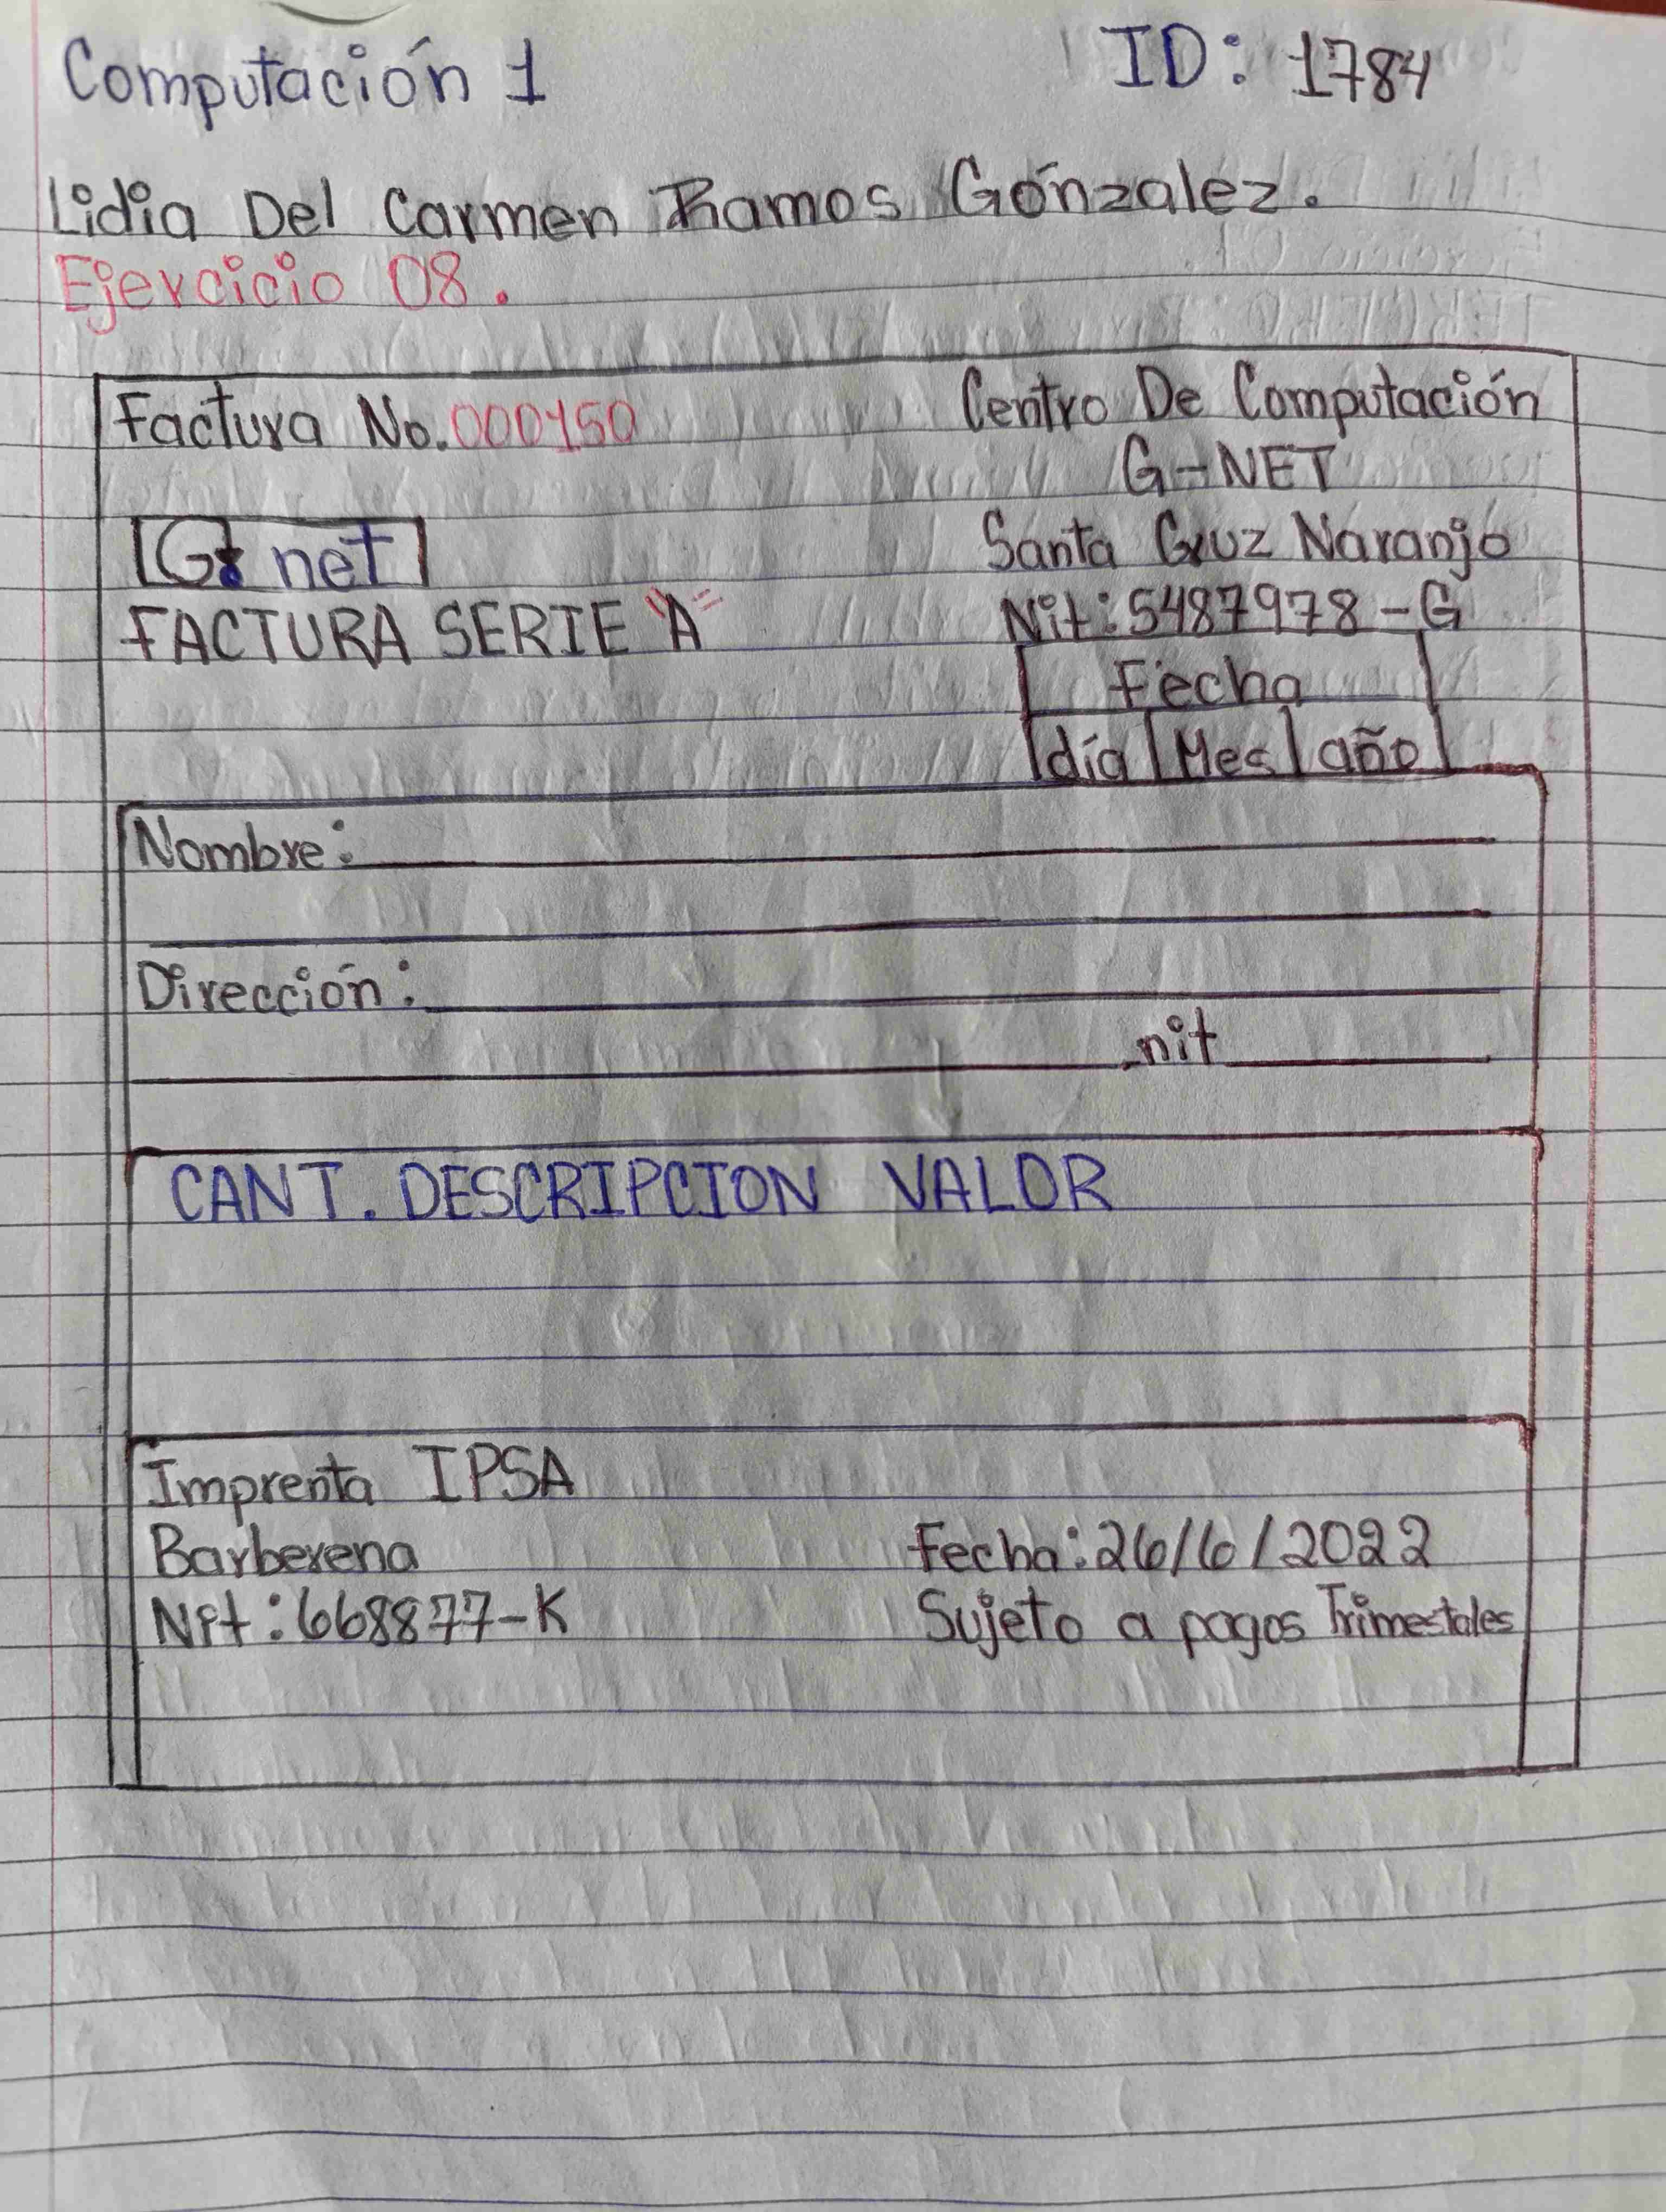 Computación 1 ID: 1784
Lidia Del Carmen Ramos Gónzalez.
Ejercicio 08.
Factura No. 000150 Centro De Computación
G-NET
G net Santa Cruz Naranjo
FACTURA SERIE "A" Nit: 5487978-G
Fecha
día Mes año
Nombre:
Dirección:
nit
CANT. DESCRIPCION VALOR
Imprenta IPSA
Barberena Fecha: 26/6/2022
Nit: 668877-K Sujeto a pagos Trimestales